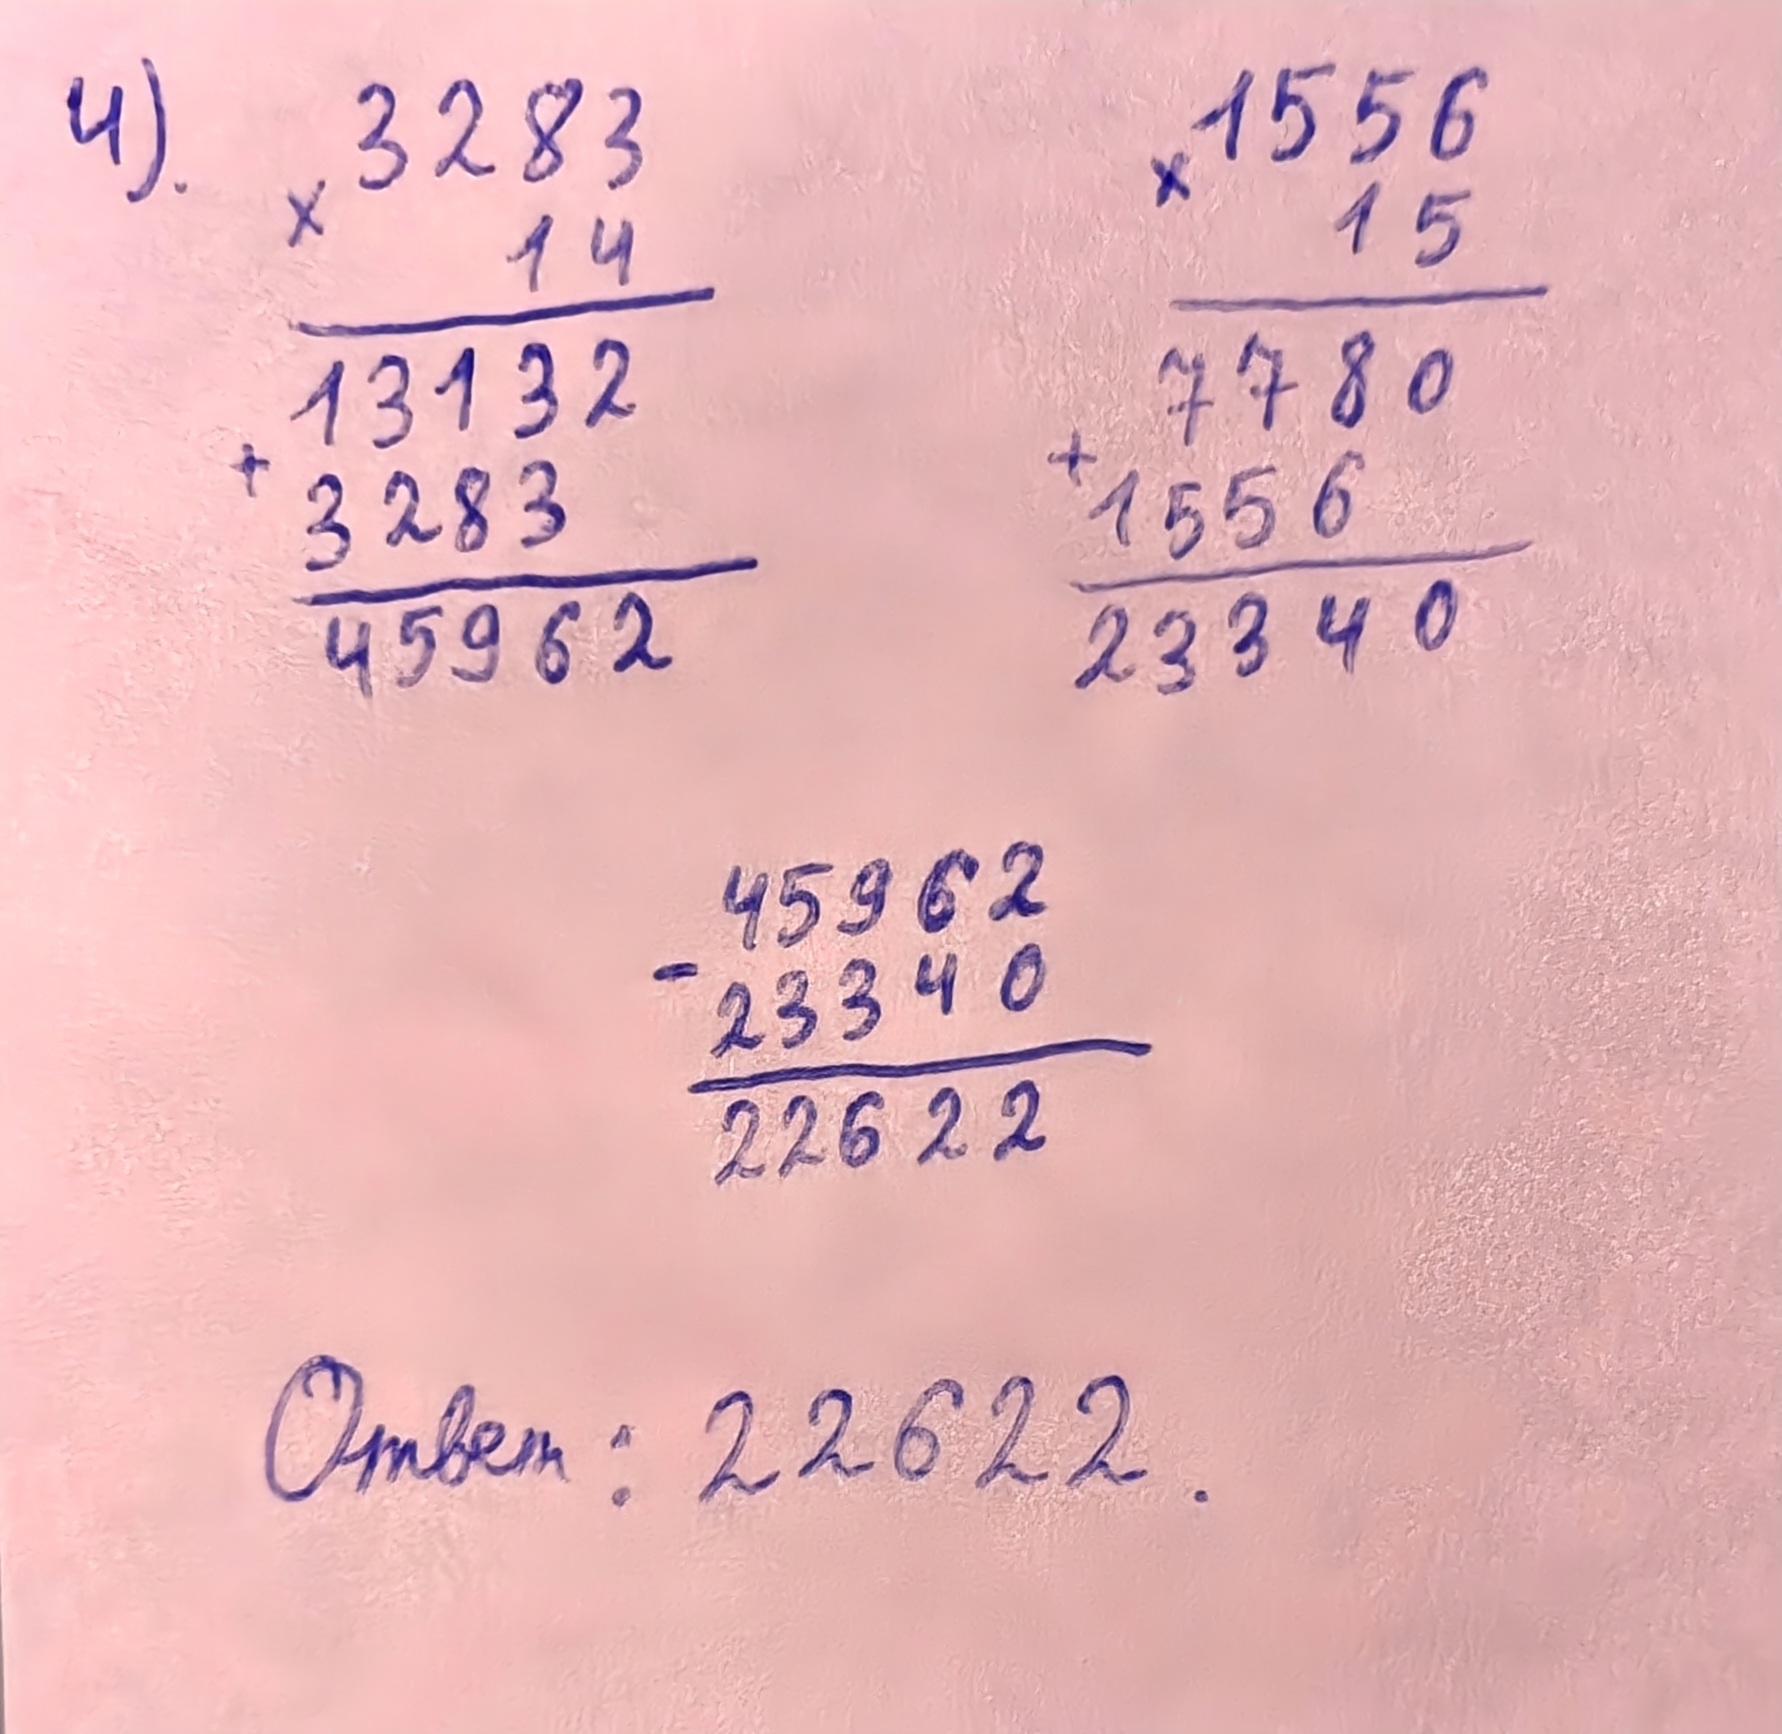 4).
3283
× 14
13132
+ 3283
45962
1556
× 15
7780
+ 1556
23340
45962
- 23340
22622
Ответ: 22622.